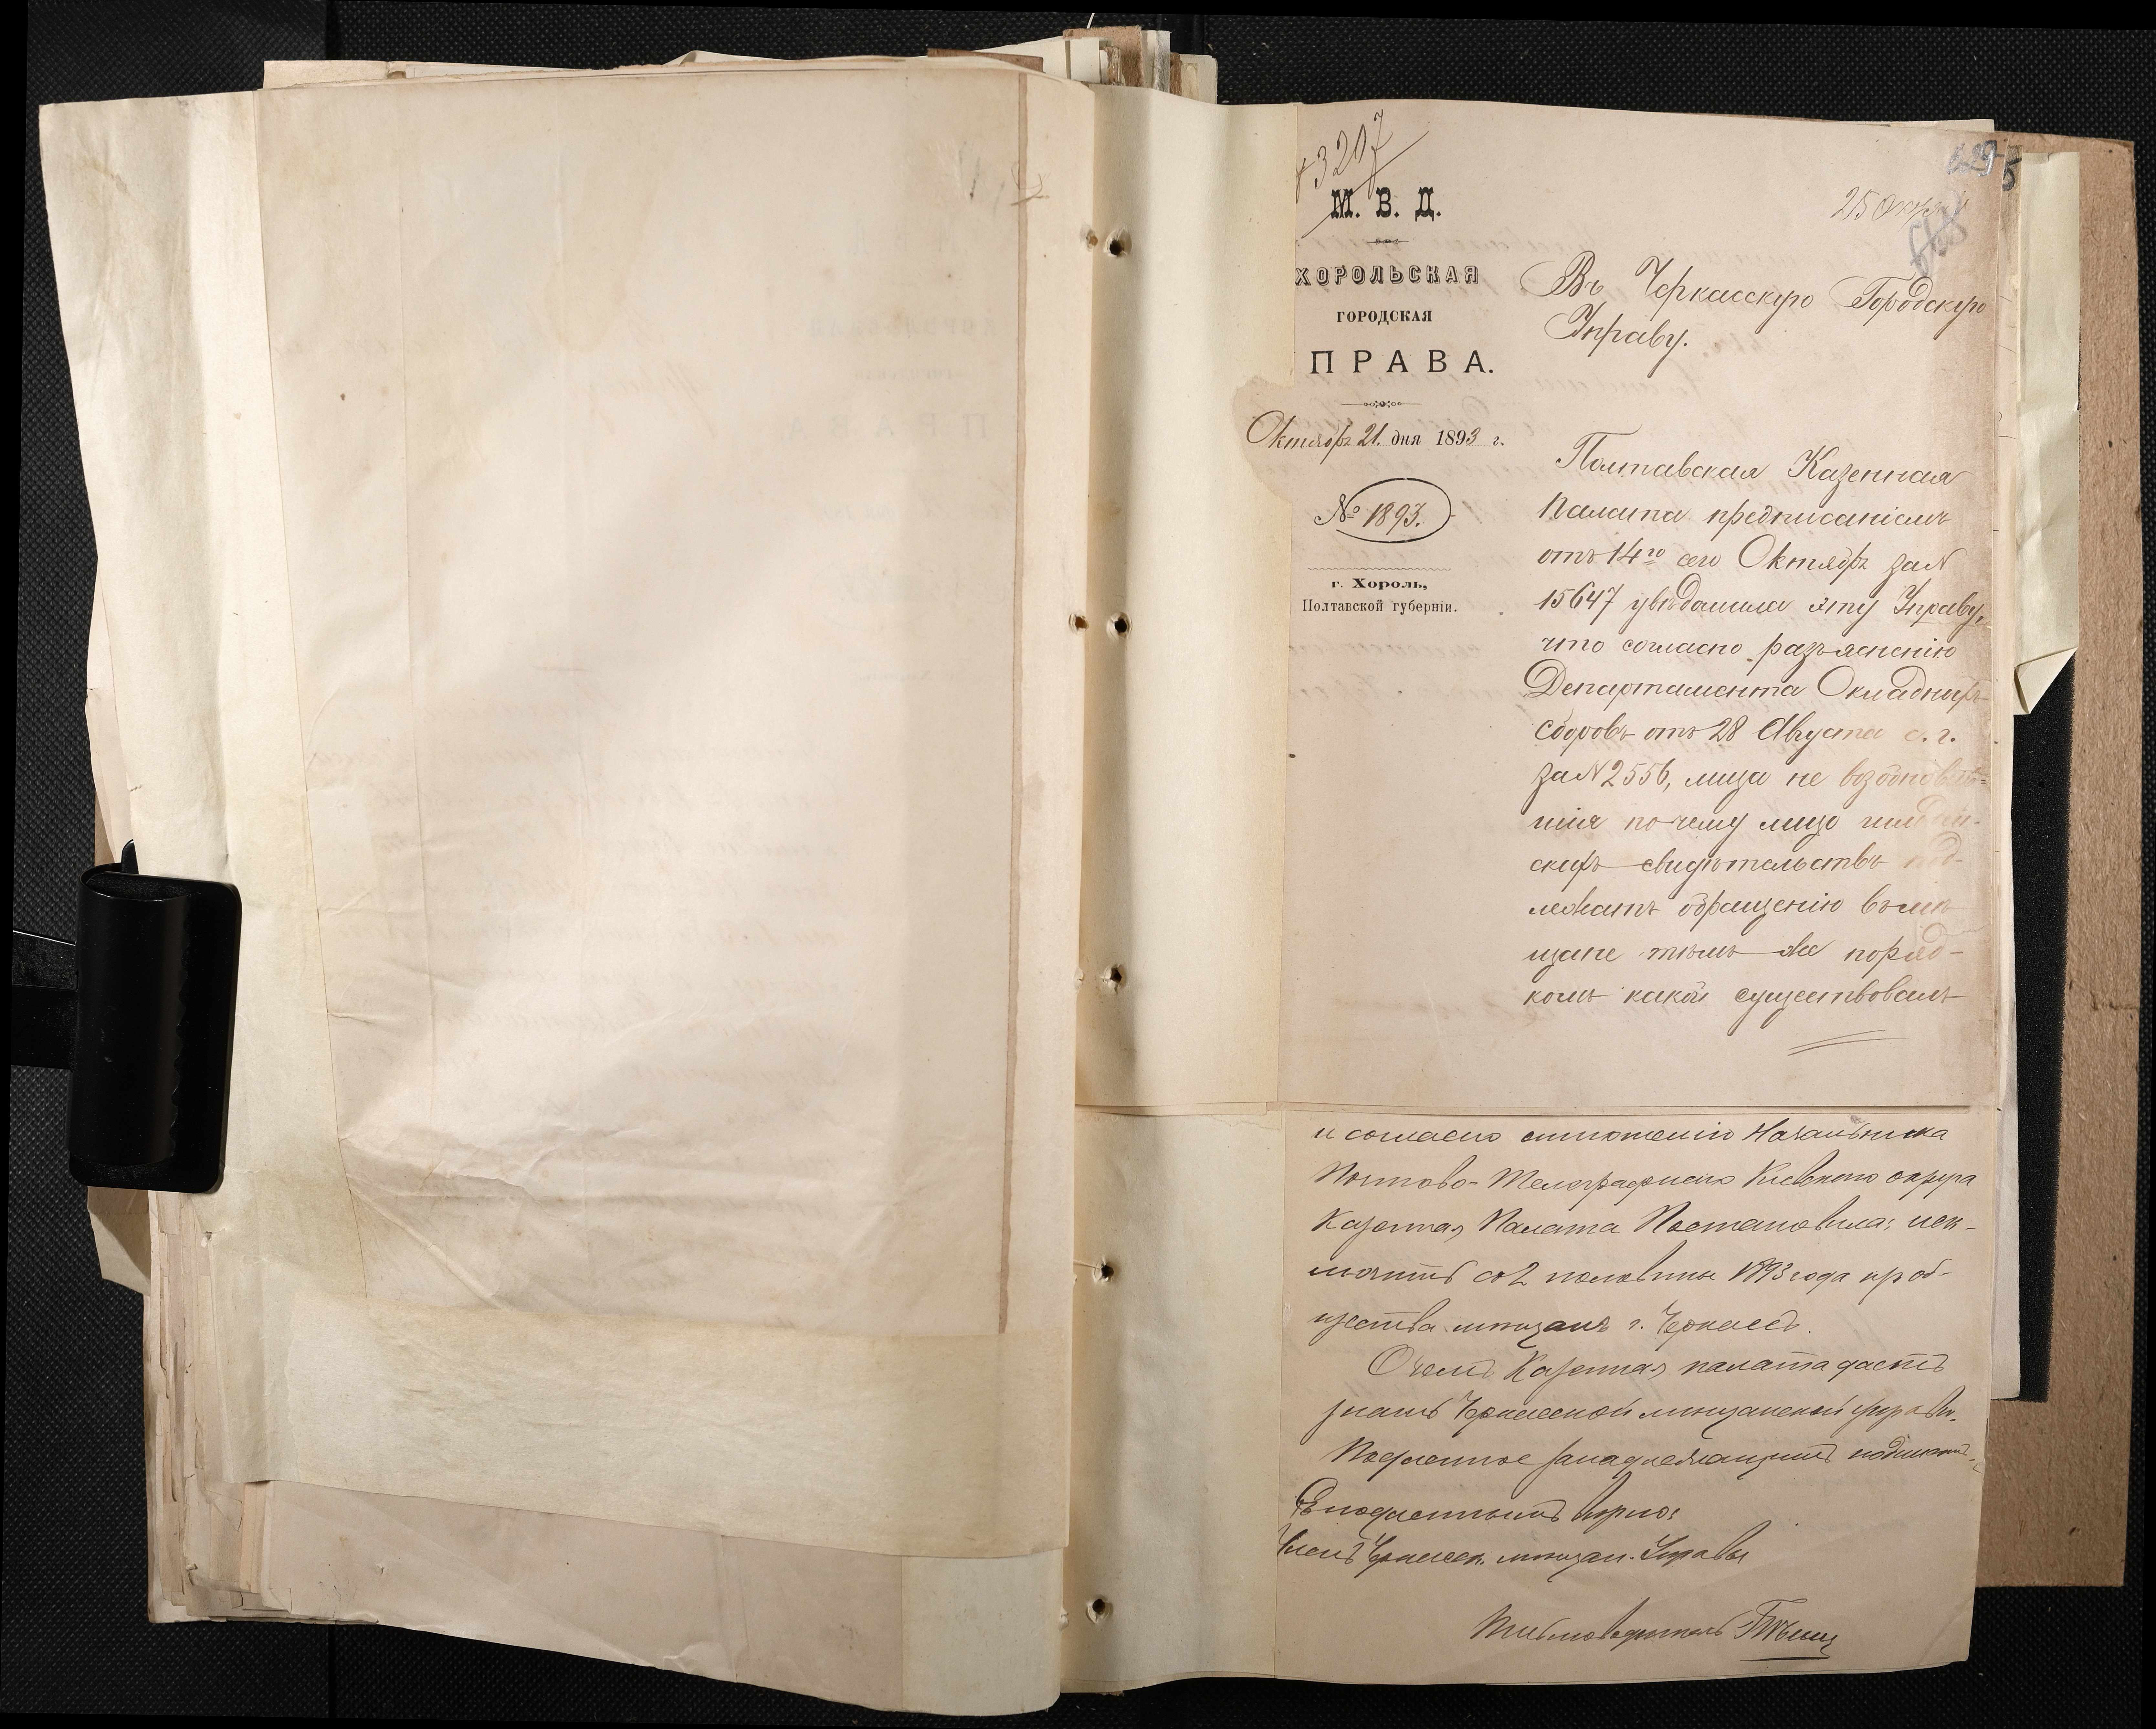 3207
М. В. Д.
ХОРОЛЬСКАЯ
ГОРОДСКАЯ
ПРАВА.
Октября 21. дня 1893 г.
№ 1893.
г. Хороль,
Полтавской губерніи.
25 Октяб
Въ Черкасскую Городскую
Управу.
Полтавская Казенная
Палата предписаніемъ
отъ 14го сего Октября за №
15647 увѣдомила эту Управу,
что согласно разъясненію
Департамента Окладныхъ
сборовъ отъ 28 Августа с. г.
за № 2556, лица не возобновив-
шія по чему либо гильдей-
скихъ свидѣтельствъ под-
лежатъ обращенію въ мѣ
щане тѣмъ же поряд-
комъ какой существовалъ
и согласно отношенію Начальника
Почтово-Телеграфнаго Кіевскаго округа
Казенная Палата Постановила: иск-
лючить со 2 половины 1893 года изъ об-
щества мѣщанъ г. Черкассъ.
О чемъ Казенная палата даетъ
знать Черкасской мѣщанской управѣ.
Подлинное за надлежащимъ подписомъ
Съ подлиннымъ вѣрно:
Членъ Черкасск. мѣщан. Управы
Письмоводитель